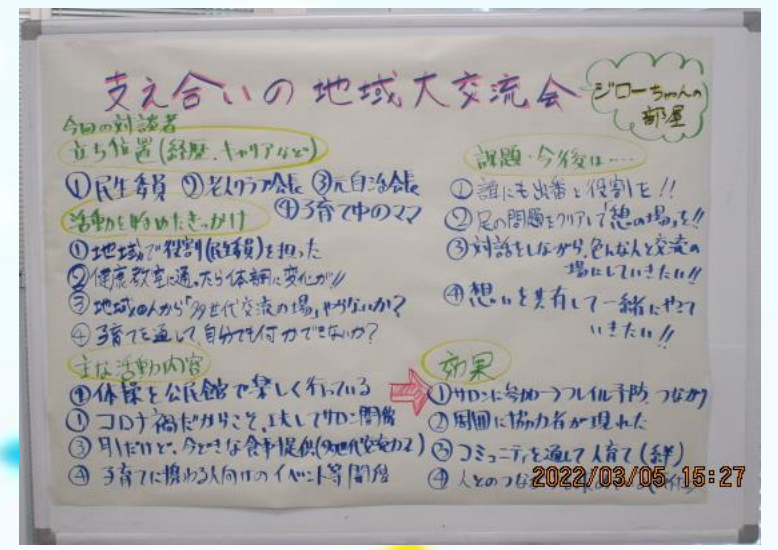 支え合いの地域大交流会
ジローちゃんの
部屋
今回の対談者
立ち位置(経歴、キャリアなど)
①民生委員 ②老人クラブ会長 ③元自治会長
④子育て中のママ
活動を始めたきっかけ
①地域で役割(民生委員)を担った
②健康教室に通ったら体調に変化が!!
③地域の人から「多世代交流の場」やらないか?
④子育てを通して、自分でも何かできないか?
主な活動内容
①体操を公民館で楽しく行っている
①コロナ禍だからこそ、工夫してサロン開催
③月1だけど、今どきな食事提供(多世代交流カフェ)
④子育てに携わる人向けのイベント等開催
課題・今後は……
①誰にも出番と役割を!!
②足の問題をクリアして「憩の場」を!!
③対話をしながら、色んな人と交流の
場にしていきたい!!
④想いを共有して一緒にやって
いきたい!!
効果
①サロンに参加→フレイル予防、つながり
②周囲に協力者が現れた
③コミュニティを通して人育て(絆)
④人とのつな
2022/03/05 15:27